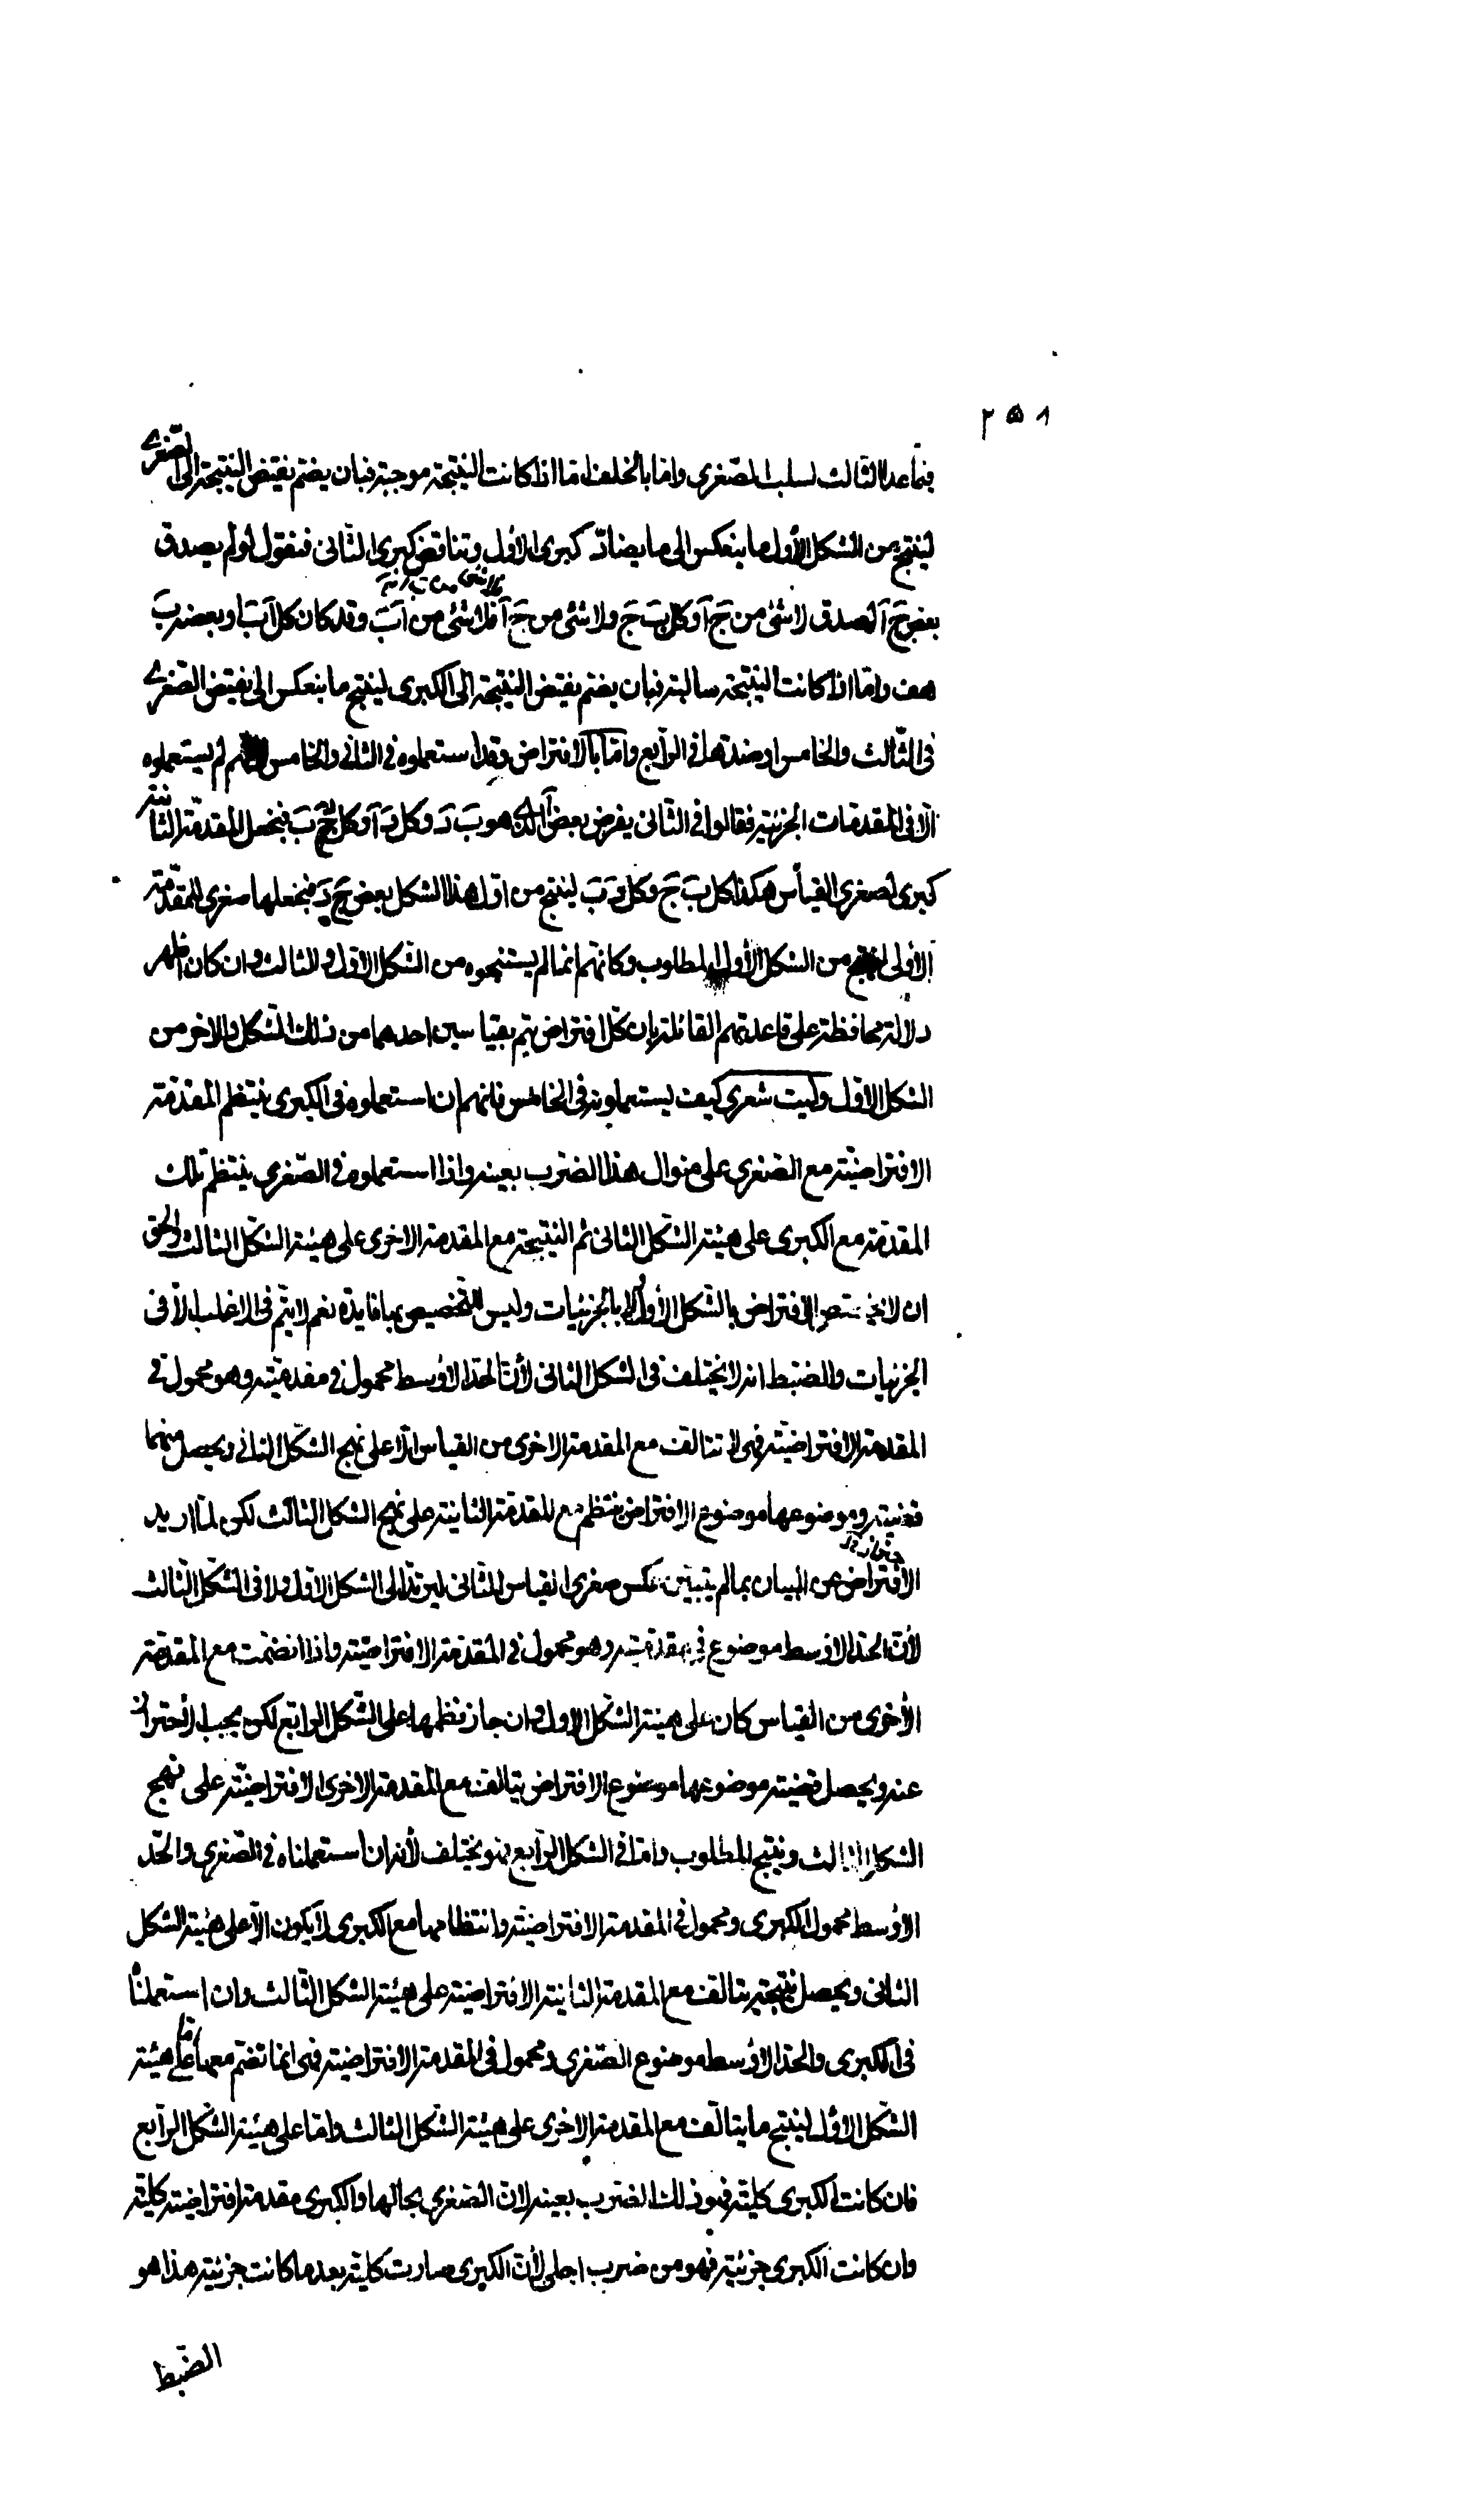 ٢٥٨
فيما عدا الثالث لسلب الصغرى واما بالخلف اما اذا كانت النتيجة موجبة فبان يضم نقيض النتيجة الى الصغرى
لينتج من الشكل الأول ما ينعكس الى ما يضاد كبرى الاول وتناقض كبرى الثانى فنقول لو لم يصدق
بعض ج آ لصدق لا شئ من ج آ وكل ب ج ولا شئ من ج آ فلا شئ من آ ب وقد كان كل آ ب او بعضه ب
هف واما اذا كانت النتيجة سالبة فبان يضم نقيض النتيجة الى الكبرى لينتج ما ينعكس الى نقيض الصغرى
فى الثالث والخامس او ضدها فى الرابع واما بالافتراض وقد استعملوه فى الثانى والخامس لم يستعملوه
الا فى المقدمات الجزئية فقالوا فى الثانى يفرض بعض آ الذى هو ب د وكل د آ وكل د ب فنجعل المقدمة الثانية
كبرى لصغرى القياس هكذا كل ب ج وكل د ب لينتج من اول هذا الشكل بعض ج د فنجعلها صغرى للمقدمة
الأولى لينتج من الشكل الأول المطلوب وكانهم انما لم يستنتجوه من الشكل الاول والثالث وان كان اظهر
دلالة محافظة على قاعدتهم القائلة بان كل افتراض يتم بقياسين احدهما من ذلك الشكل والاخر من
الشكل الاول وليت شعرى كيف يستعملونه فى الخامس فانهم ان استعملوه فى الكبرى ينتظم المقدمة
الافتراضية مع الصغرى على منوال هذا الضرب بعينه واذا استعملوه فى الصغرى ينتظم تلك
المقدمة مع الكبرى على هيئة الشكل الثانى ثم النتيجة مع المقدمة الاخرى على هيئة الشكل الثالث والحق
ان لا يختص الافتراض بالشكل الأول ولا بالجزئيات وليس للتخصيص بها فايدة نعم لا يتم فى الاغلب الا فى
الجزئيات والضبط انه لا يختلف فى الشكل الثانى لأن الحد الاوسط محمول فى مقدمتيه وهو محمول فى
المقدمة الافتراضية فهى لا تتالف مع المقدمة الاخرى من القياس الا على نهج الشكل الثانى ويحصل منهما
قضية وموضوعها موضوع الافتراض ينتظم مع المقدمة الثانية على نهج الشكل الثالث لكن لما اريد
الافتراض من البيان بما لم يتبين عكس صغرى القياس الثانى ليرتد الى الشكل الاول ولا فى الشكل الثالث
لأن الحد الاوسط موضوع فى مقدمتيه وهو محمول فى المقدمة الافتراضية واذا انضمت مع المقدمة
الأخرى من القياس كان على هيئة الشكل الاول وان جاز نظمها على الشكل الرابع لكن يجب الاحتراز
عنه ويحصل قضية موضوعها موضوع الافتراض يتالف مع المقدمة الاخرى الافتراضية على نهج
الشكل الثالث وينتج المطلوب واما فى الشكل الرابع فهو يختلف لأنه ان استعملناه فى الصغرى والحد
الاوسط محمول الكبرى ومحمول فى المقدمة الافتراضية وانتظامها مع الكبرى لا يكون الا على هيئة الشكل
الثانى ويحصل نتيجة يتالف مع المقدمة الثانية الافتراضية على هيئة الشكل الثالث وان استعملناه
فى الكبرى والحد الاوسط موضوع الصغرى ومحمول فى المقدمة الافتراضية فهى انما تضم معها اما على هيئة
الشكل الاول لينتج ما يتالف مع المقدمة الاخرى على هيئة الشكل الثالث واما على هيئة الشكل الرابع
فان كانت الكبرى كلية فهو ذلك الضرب بعينه لان الصغرى بحالها والكبرى مقدمة افتراضية كلية
وان كانت الكبرى جزئية فهو من ضرب اجلى لأن الكبرى صارت كلية بعد ما كانت جزئية هذا هو
الضبط